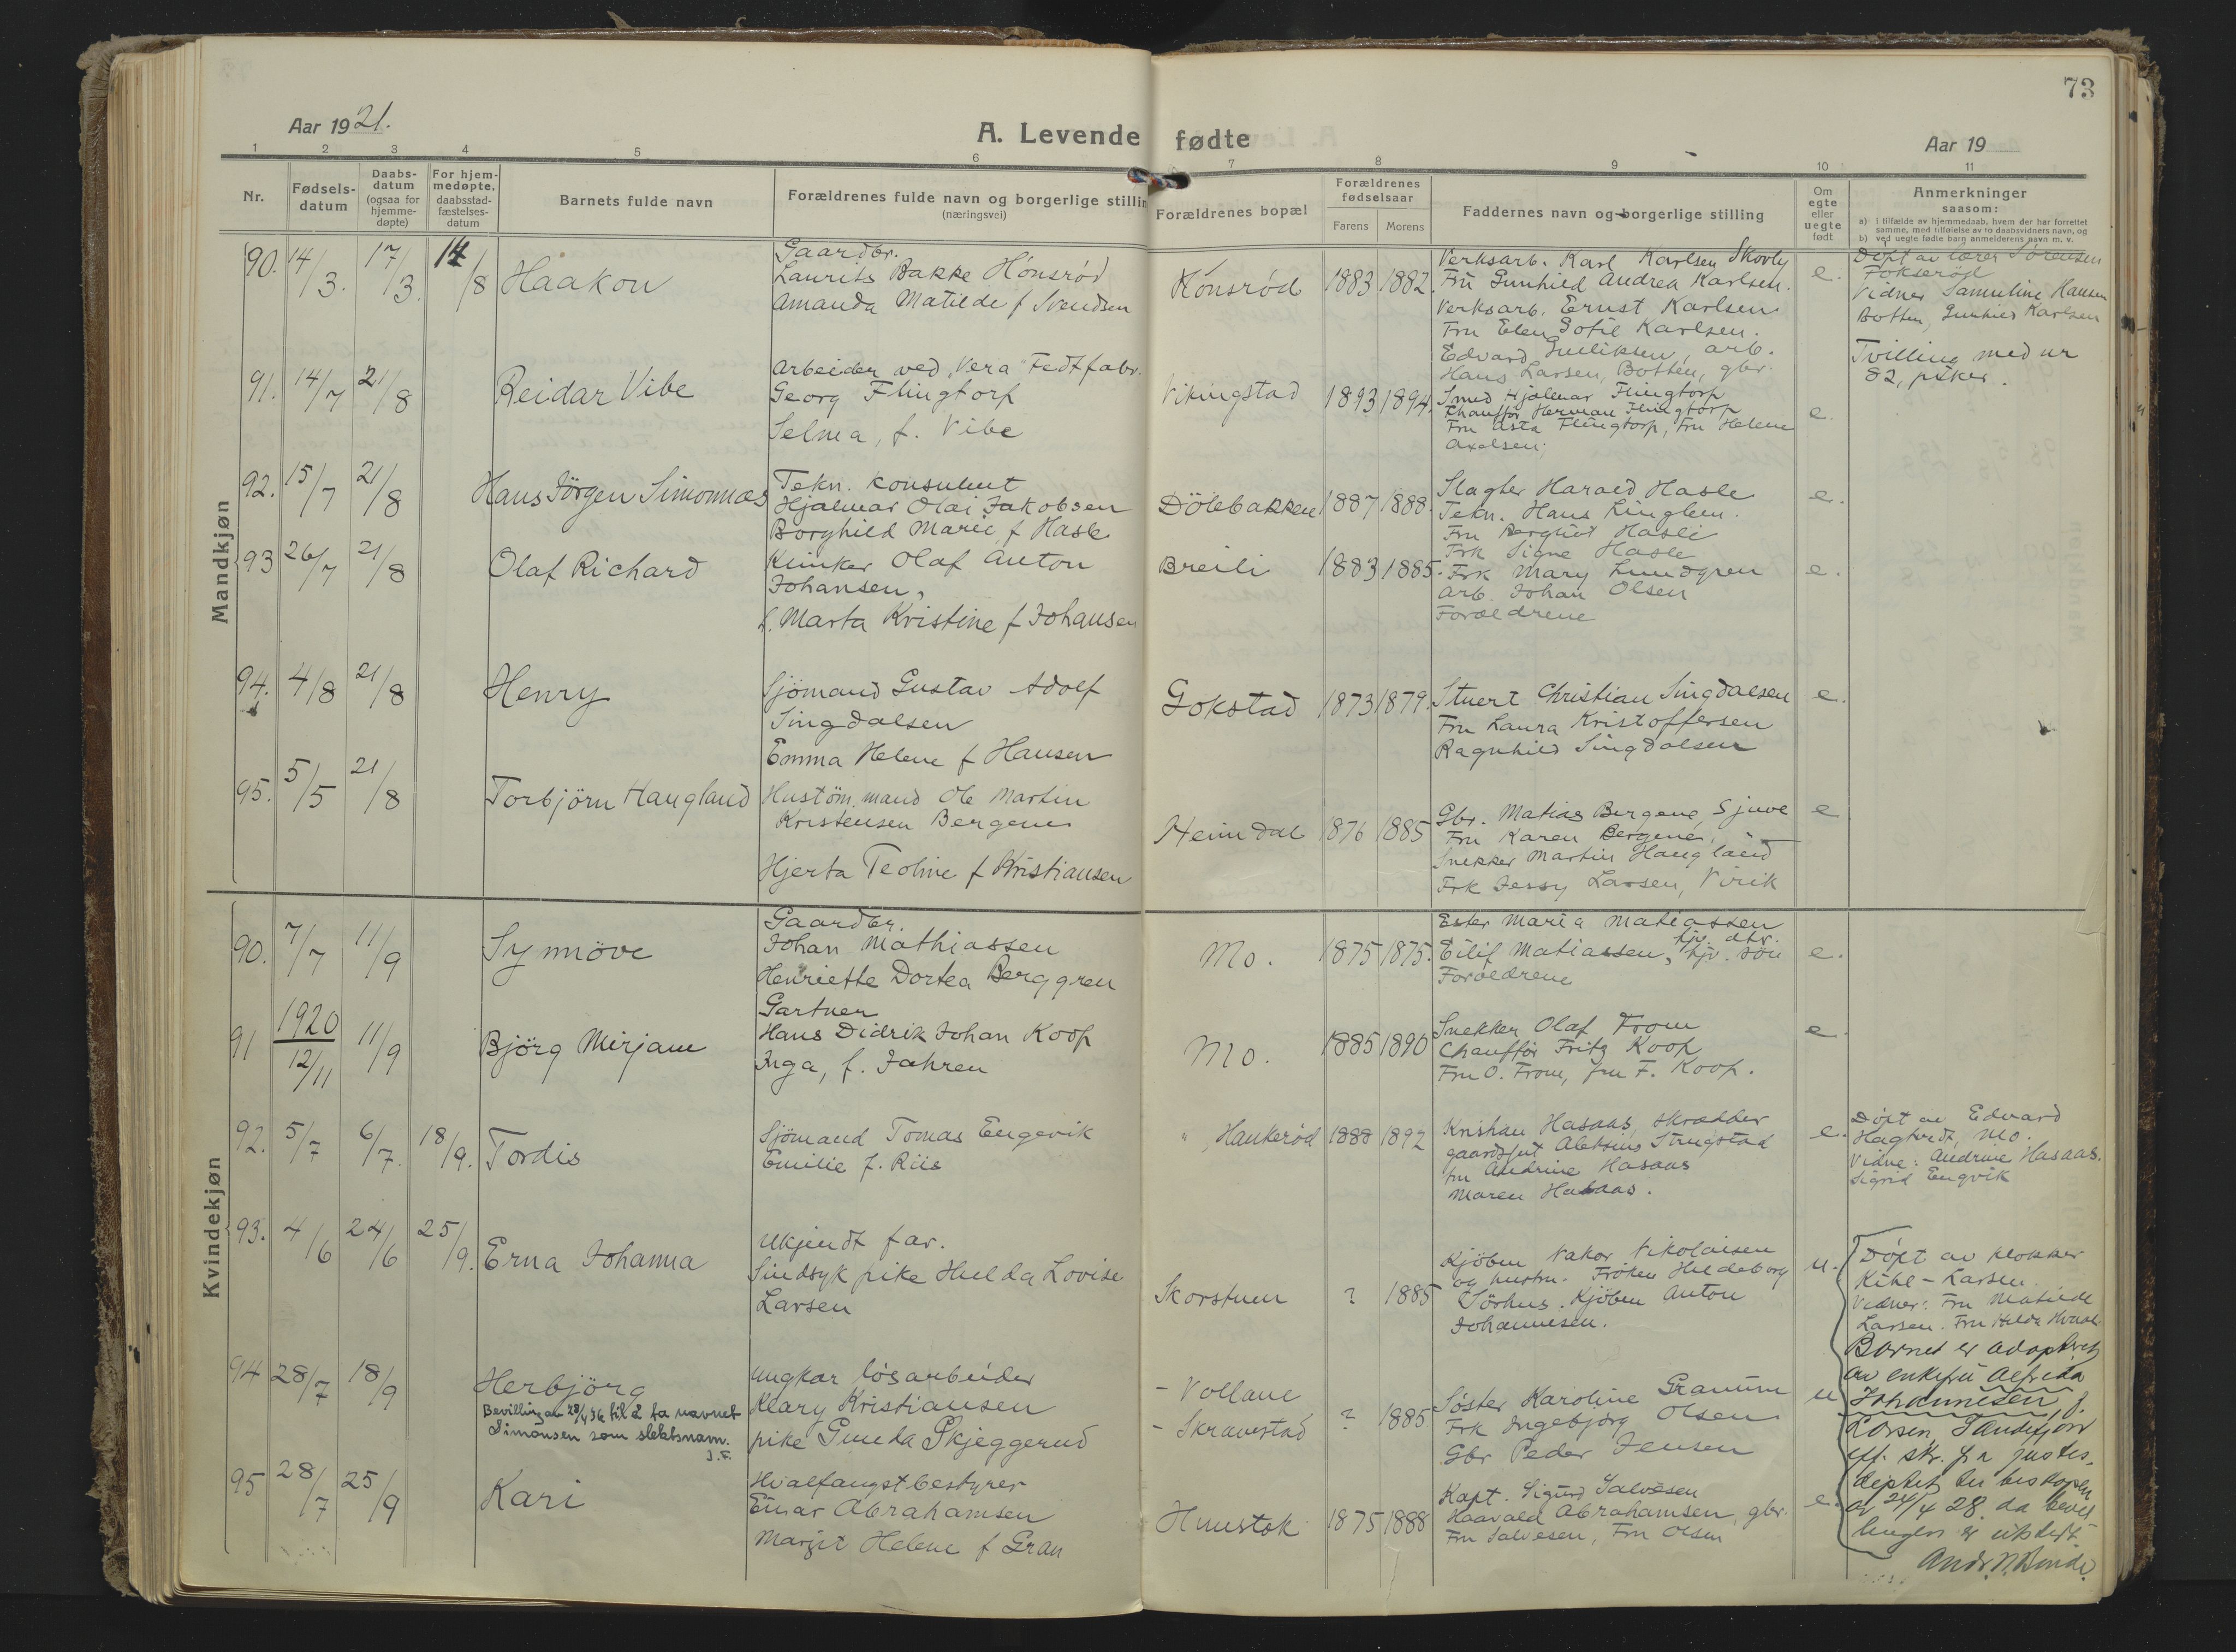 73
Aar 1921.
A. Levende fødte
Aar 19
1 2 3 4 5 6 7 8 9 10 11
Nr.
Fødsels-
datum
Daabs-
datum
(ogsaa for
hjemme-
døpte)
For hjem-
medøpte,
daabsstad-
fæstelses-
datum
Barnets fulde navn
Forældrenes fulde navn og borgerlige stillin
(næringsvei)
Forældrenes bopæl
Forældrenes
fødselsaar
Farens Morens
Faddernes navn og borgerlige stilling
Om
egte
eller
uegte
født
Anmerkninger
saasom:
a) i tilfælde av hjemmedaab, hvem der har forrettet
samme, med tilføielse av to daabsvidners navn, og
b) ved uegte fødte barn anmelderens navn m. v.
Mandkjøn
90. 14/3. 17/3. 14/8 Haakon
Gaardbr.
Laurits Bakke Hönsröd
Amanda Matilde f Svendsen
Hönsröd 1883 1882.
Verksarb. Karl Karlsen Skovly
Fru Gunhild Andrea Karlsen.
Verksarb. Ernst Karlsen
Fru Elen Sofie Karlsen.
Edvard Gulliksen, arb.
Hans Larsen, Botten, gbr.
e.
Döpt av lærer Sörensen
Fokseröd
Vidner Samuline Hansen
Botten, Gunhild Karlsen
91. 14/7 21/8 Reidar Vibe
Arbeider ved "Vera" Fedtfabr.
Georg Flingtorp
Selma, f. Vibe
Vikingstad 1893 1894.
Smed Hjalmar Flingtorp
Chaufför Herman Flingtorp
Fru Asta Flingtorp, Fru Helene
Axelsen.
e.
Tvilling med nr
82, piker.
92. 15/7 21/8 Hans Jörgen Simonnæs
Tekn. konsulent
Hjalmar Olai Jakobsen
Borghild Marie f Hasle
Dölebakken 1887 1888.
Slagter Harald Hasle
Tekn. Hans Ringlem.
Fru Hasle
Frk Signe Hasle
e.
93 26/7 21/8 Olaf Richard
Olaf Anton
Johansen,
Marta Kristine f Johansen
Breili 1883 1885.
Frk Mary Lundgren
Arb. Johan Olsen
Forældrene
e.
94. 4/8 21/8 Henry
Sjömand Gustav Adolf
Singdalsen
Emma Helene f Hansen
Gokstad 1873 1879.
Stuert Christian Singdalsen
Fru Laura Kristoffersen
Ragnhild Singdalsen
e.
95. 5/5 21/8 Torbjörn Haugland
Hustöm.mand Ole Martin
Kristensen Bergene
Hjerta Teoline f Kristiansen
Heimdal 1876 1885
Gbr. Matias Bergene, Sjuve
Fru Karen Bergene,
Snekker Martin Haugland
Frk Jessy Larsen, Virik
e
Kvindekjøn
90. 7/7 11/9 Synnöve
Gaardbr.
Johan Mathiassen
Henriette Dortea Berggren
Mo. 1875 1875.
Ester Maria Matiassen
hjv. dtr.
Eilif Matiassen, hjv. sön
Forældrene
e.
91 1920 12/11 11/9 Björg Mirjam
Gartner
Hans Didrik Johan Koop
Inga, f. Jahren
Mo. 1885 1890
Snekker Olaf From
Chaufför Fritz Koop
Fru O. From, fru F. Koop.
e.
92. 5/7 6/7. 18/9. Tordis
Sjömand Tomas Engevik
Emilie f. Riis
" Haukeröd 1888 1892
Kristian Hasaas, skrædder
gaardsgut Aletsius Strugstad
fru Andrine Hasaas
Maren Hasaas.
e.
Döpt av Edvard
Hagtvedt, Mo.
Vidne: Andrine Hasaas.
Sigrid Engvik
93. 4/6 24/6 25/9. Erna Johanna
Ukjendt far.
Sindsyk pike Hulda Lovise
Larsen
Skorstuen ? 1885
Kjöbm Nakor Nikolaisen
og hustru. Fröken Hildeborg
Sörhus. Kjöbm Anton
Johannesen.
u.
Döpt av klokker
Kihl-Larsen.
Vidner: Fru Matilde
Larsen. Fru Hilda
Barnet er adoptert
av enkefru Alfrida
Johannesen, f.
Larsen, Sandefjord
eff. skr. fra justis.
deptet til biskopen
av 24/4 28. da bevil-
lingen er utstedt.
94 28/7 18/9 Herbjörg
Bevilling av 28/4 36 til å ta navnet
Simonsen som slektsnavn.
J.F.
Ungkar lösarbeider
Klary Kristiansen
pike Gunda Skjeggerud
- Vollane
- Skravestad ? 1885
Söster Karoline Granum
Frk Ingebjörg Olsen
Gbr Peder Jensen
u
95 28/7 25/9 Kari
Hvalfangstbestyrer
Einar Abrahamsen
Margit Helene f Gran
Hunstok 1875 1888
Kapt. Sigurd Salvesen
Haavald Abrahamsen, gbr.
Fru Salvesen, Fru Olsen
e.